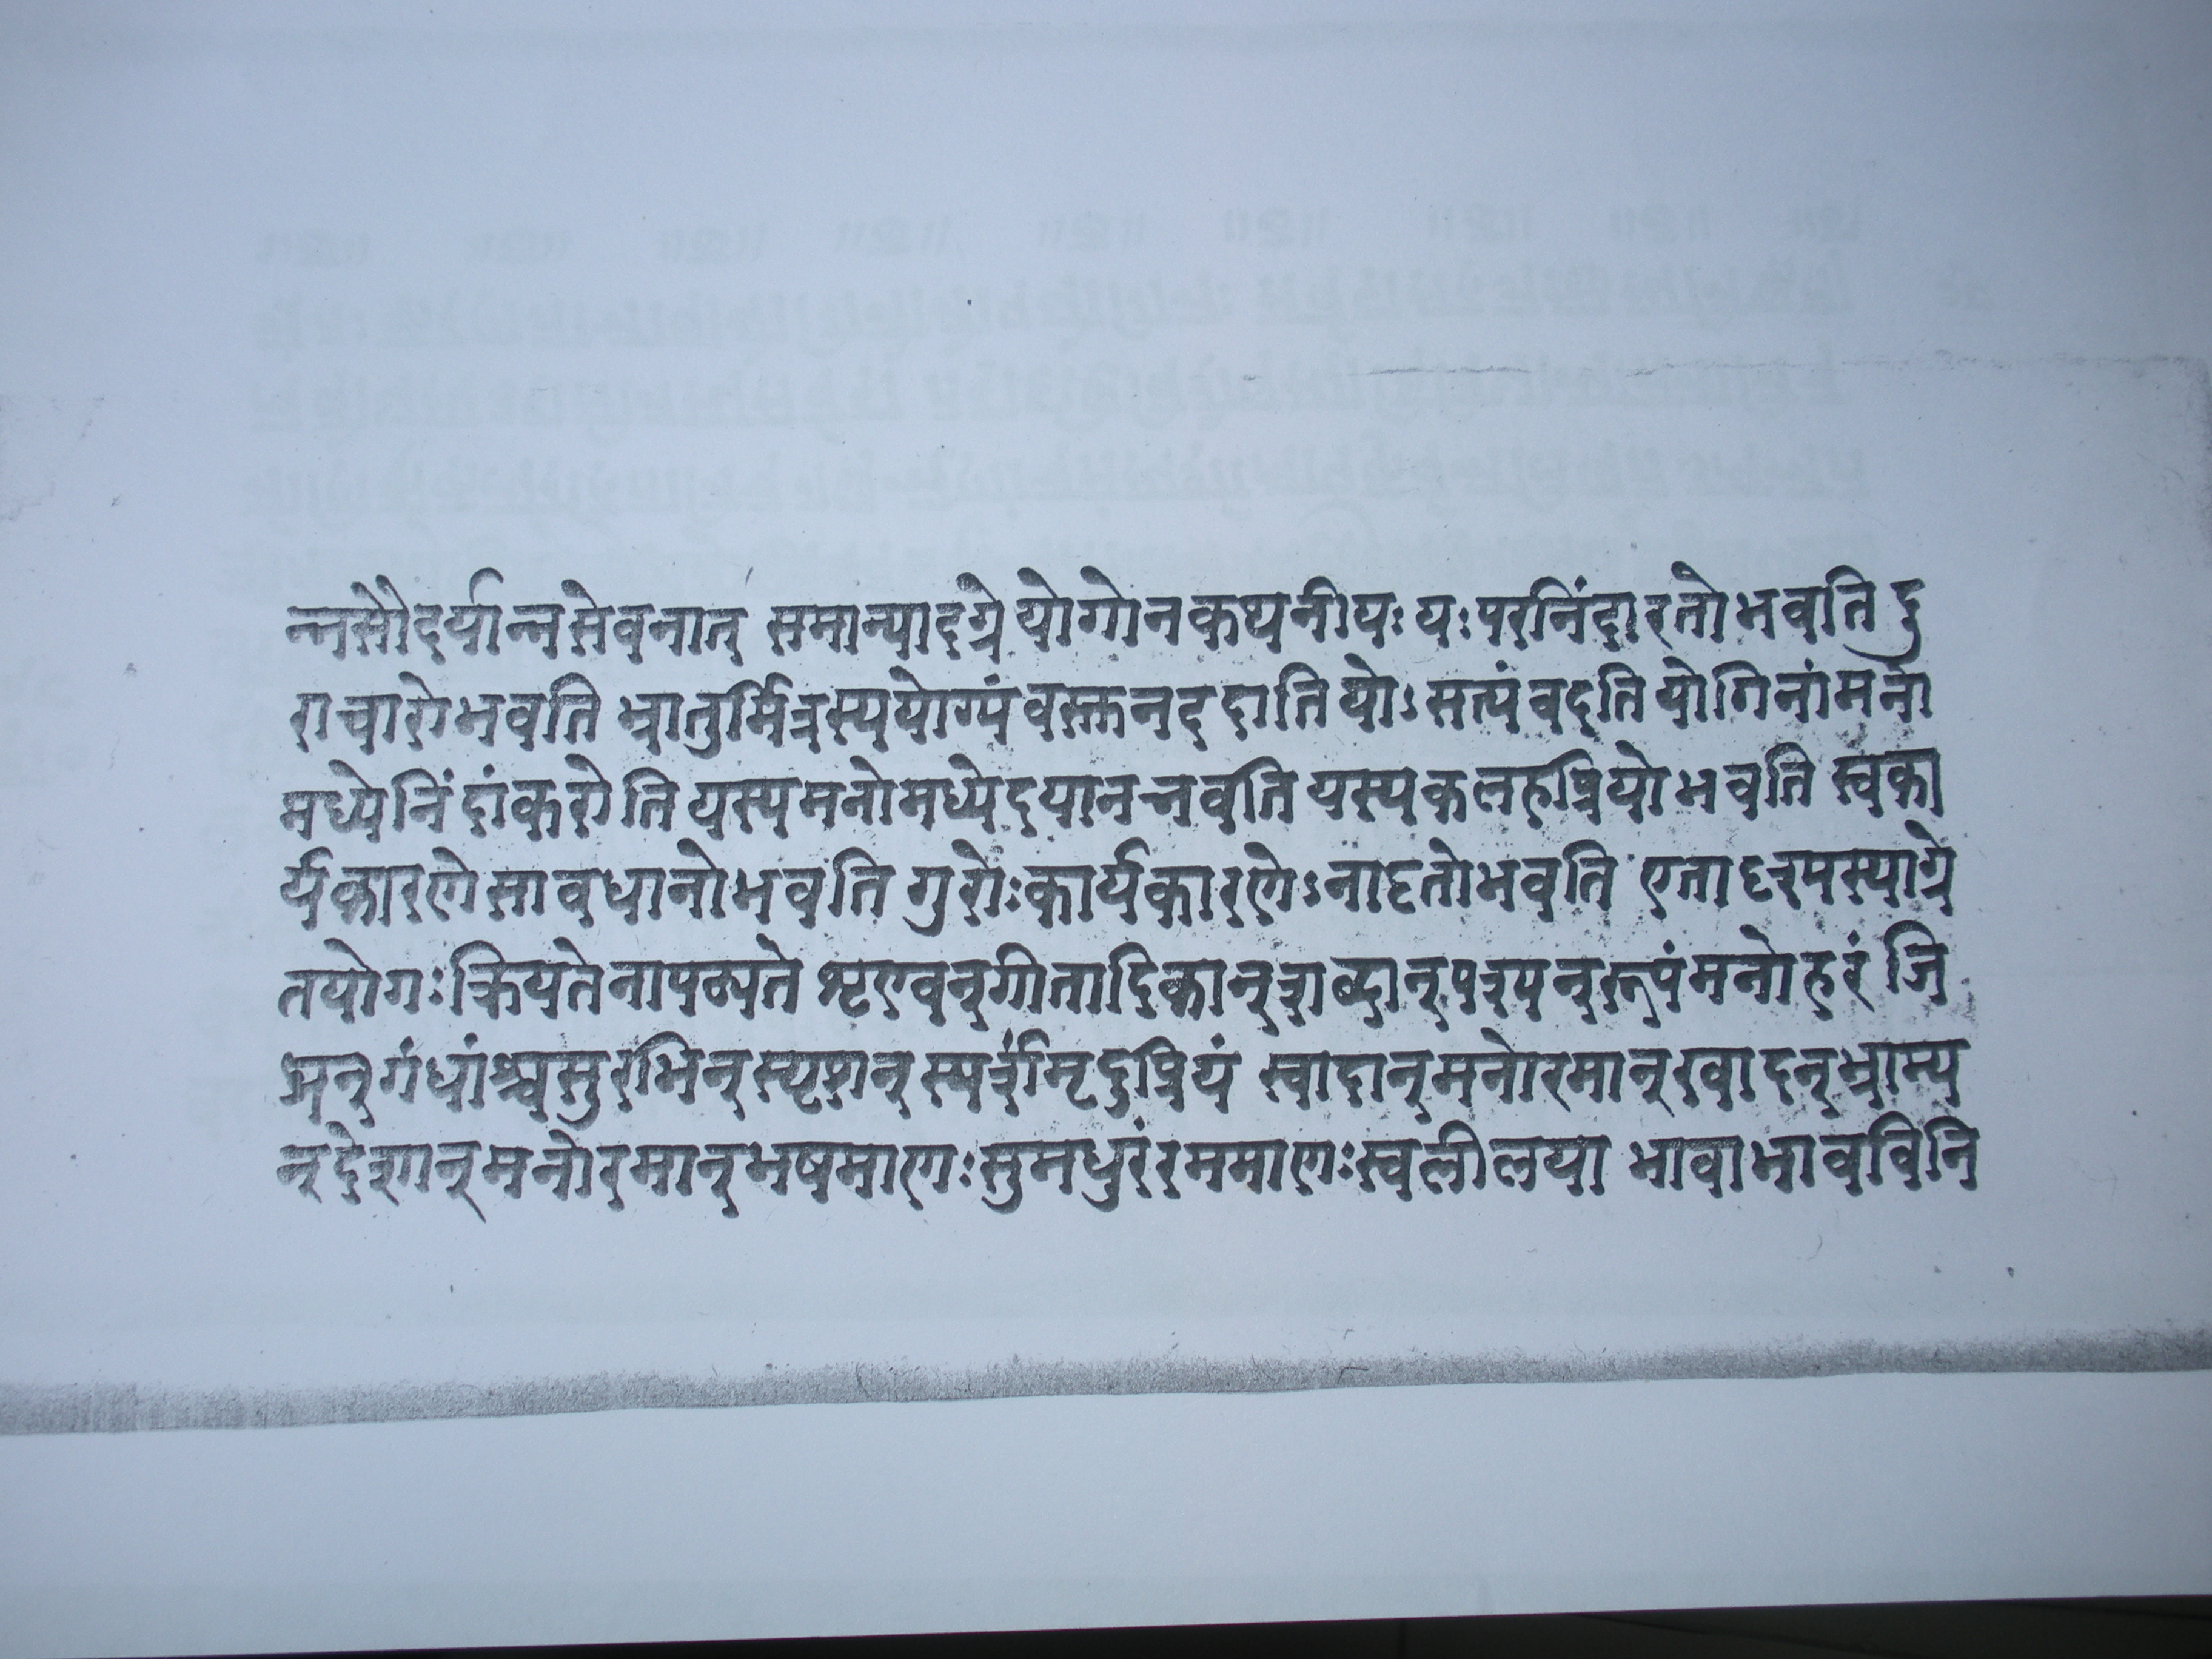 न्नसौदर्यान्नसेवनात् समान्यादग्रे योगोनकथनीयः यःपरनिंदारतोभवति दु
राचारोभवति भ्रातुर्मित्रस्ययोग्यंवस्तनददाति योऽसत्यंवदति योगिनांमनो
मध्येनिंदांकरोति यस्यमनोमध्येदयानन्नवति यस्यकलहप्रियोभवति स्वका
र्यकारणेसावधानोभवति गुरोःकार्यकारणेऽनादृतोभवति एतादृशस्याग्रे
तयोगःक्रियतेनापठ्यते शृण्वन्गीतादिकान्शब्दान्पश्यन्रूपंमनोहरं जि
घ्रन्गंधांश्चसुरभिन्स्पृशन्स्पर्शमृदुप्रियं स्वादान्मनोरमान्खादन्भ्राम्य
न्देशान्मनोरमान्भषमाणःसुमधुरंरममाणःस्वलीलया भावाभावविनि